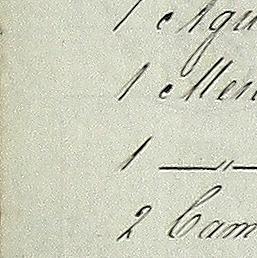 1 Agu
1 Men
1 — " —
2 Cam